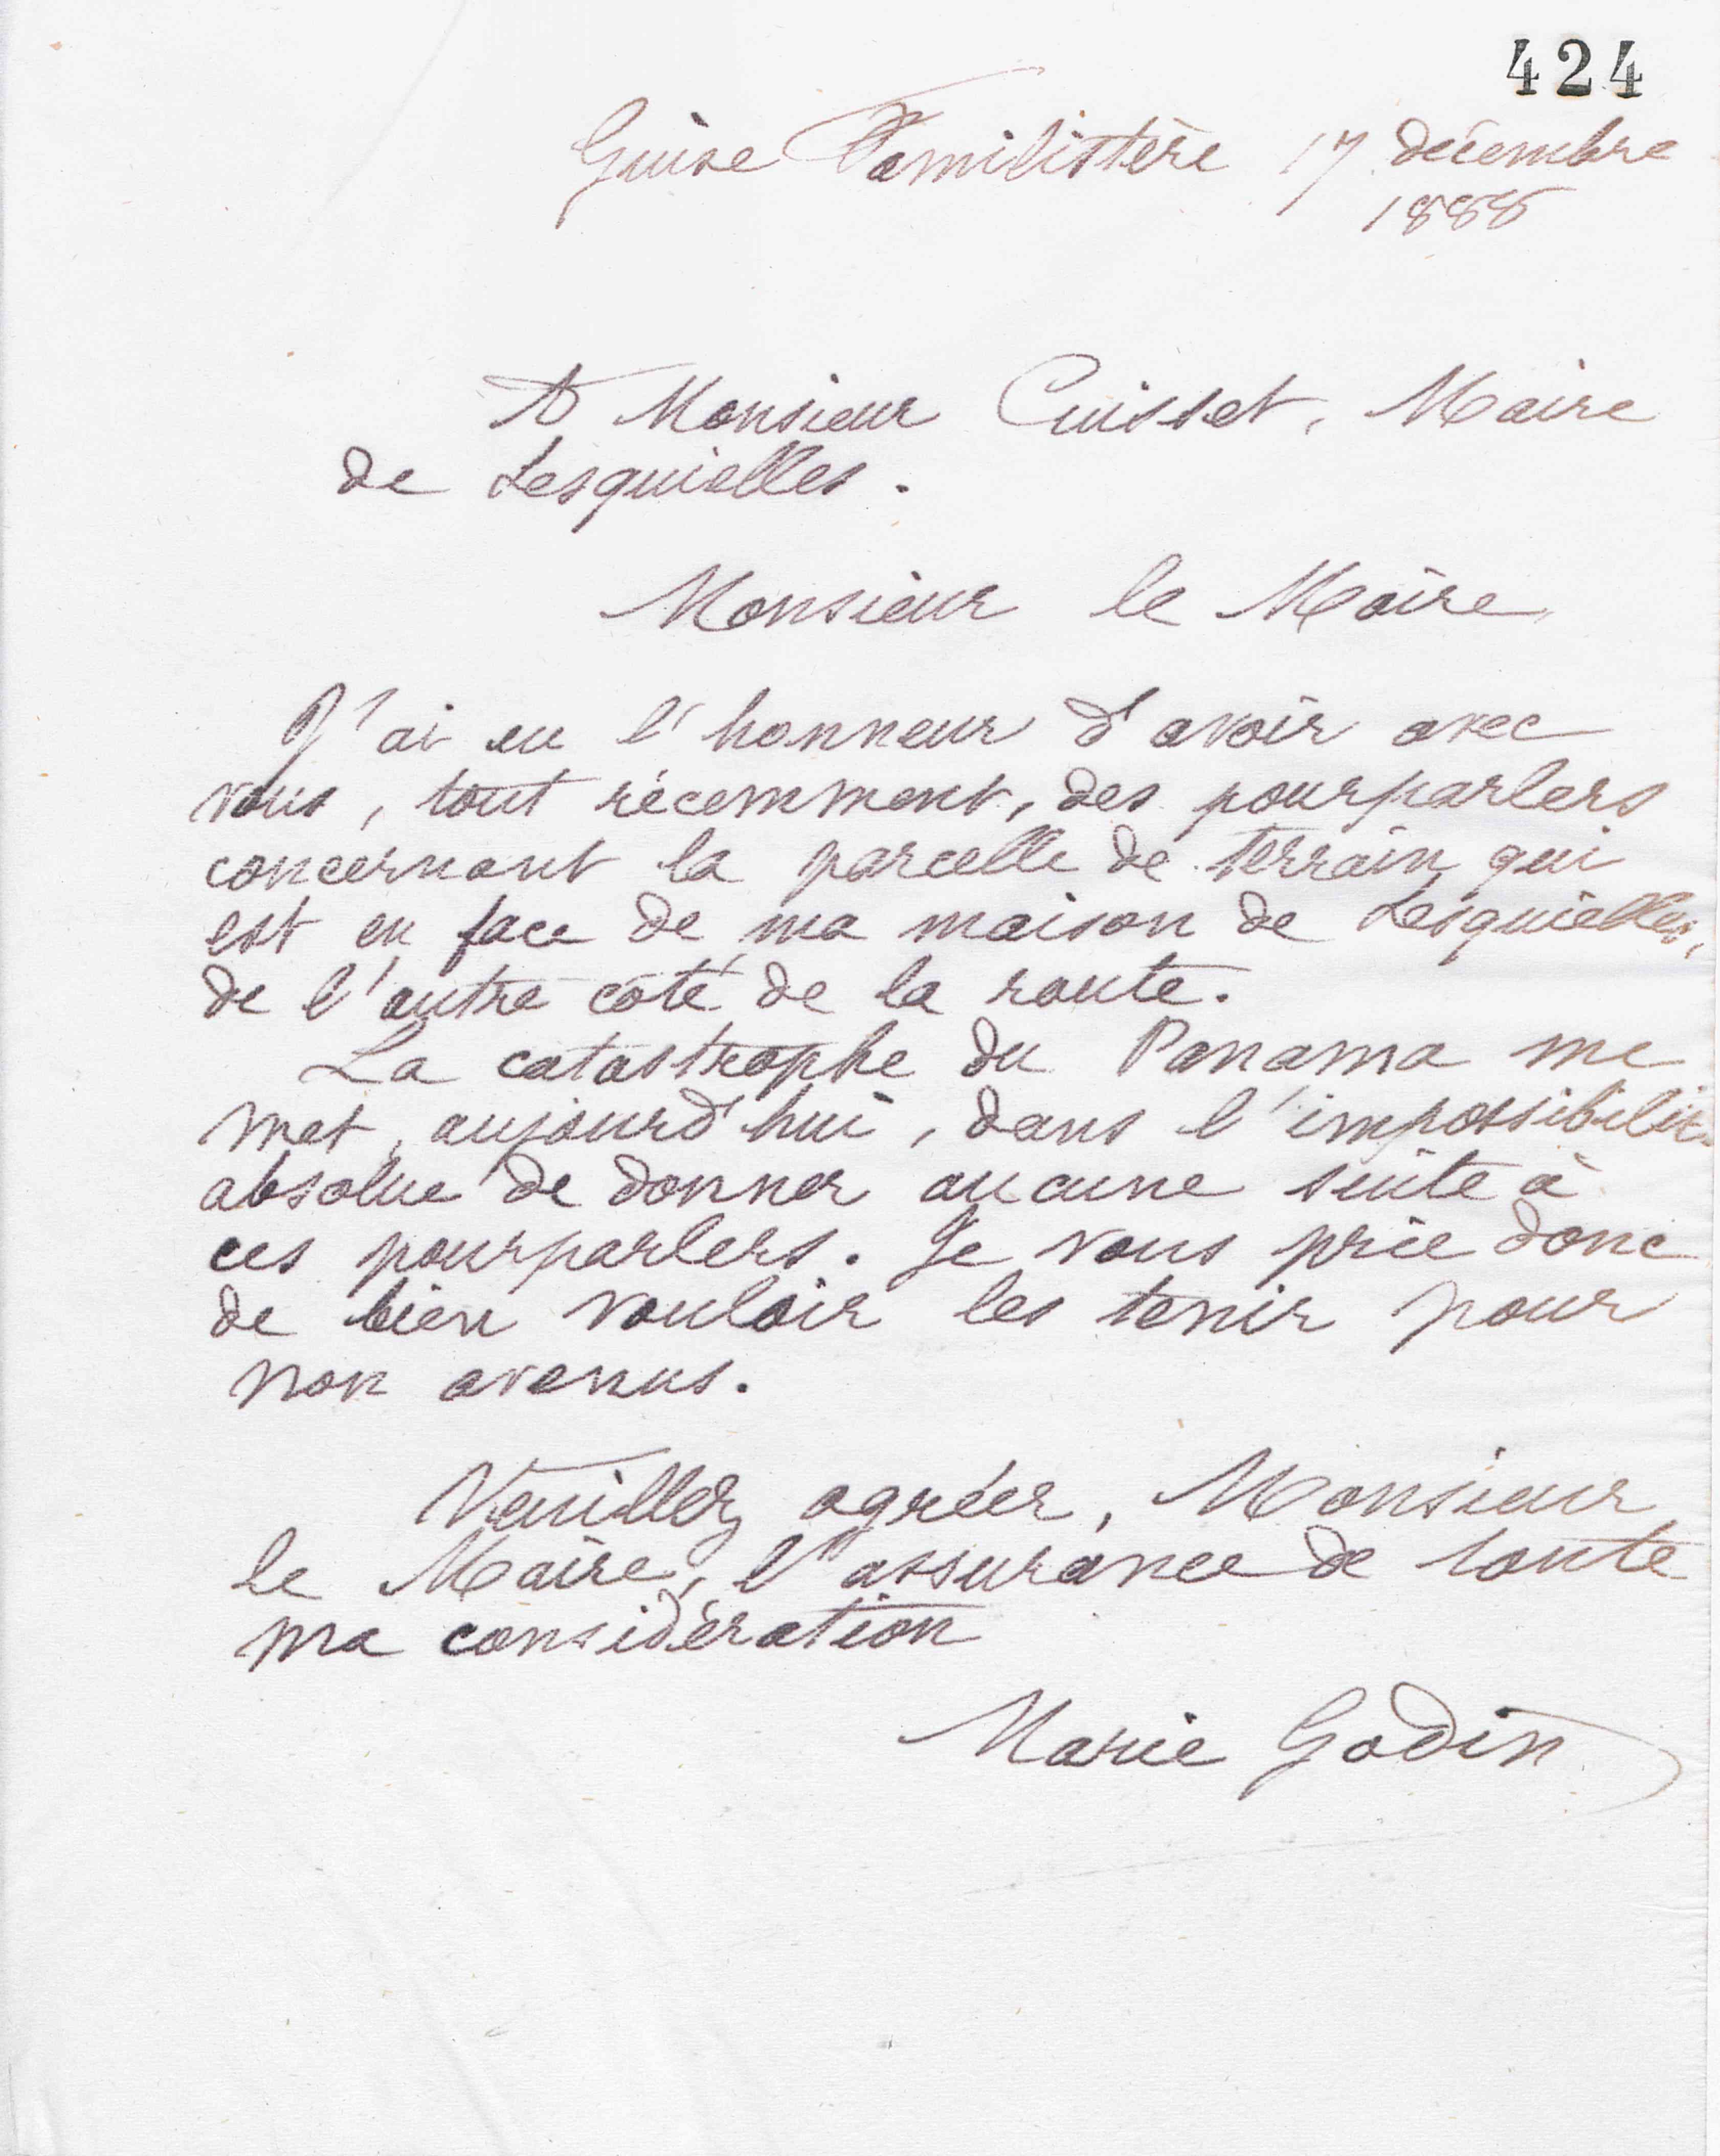 424
Guise Familistère 17 décembre
1888
A Monsieur Cuisset, Maire
de Lesquielles.
Monsieur le Maire,
J'ai eu l'honneur d'avoir avec
vous, tout récemment, des pourparlers
concernant la parcelle de terrain qui
est en face de ma maison de Lesquielles,
de l'autre côté de la route.
La catastrophe du Panama me
met, aujourd'hui, dans l'impossibilité
absolue de donner aucune suite à
ces pourparlers. Je vous prie donc
de bien vouloir les tenir pour
non avenus.
Veuillez agréer, Monsieur
le Maire, l'assurance de toute
ma considération
Marie Godin